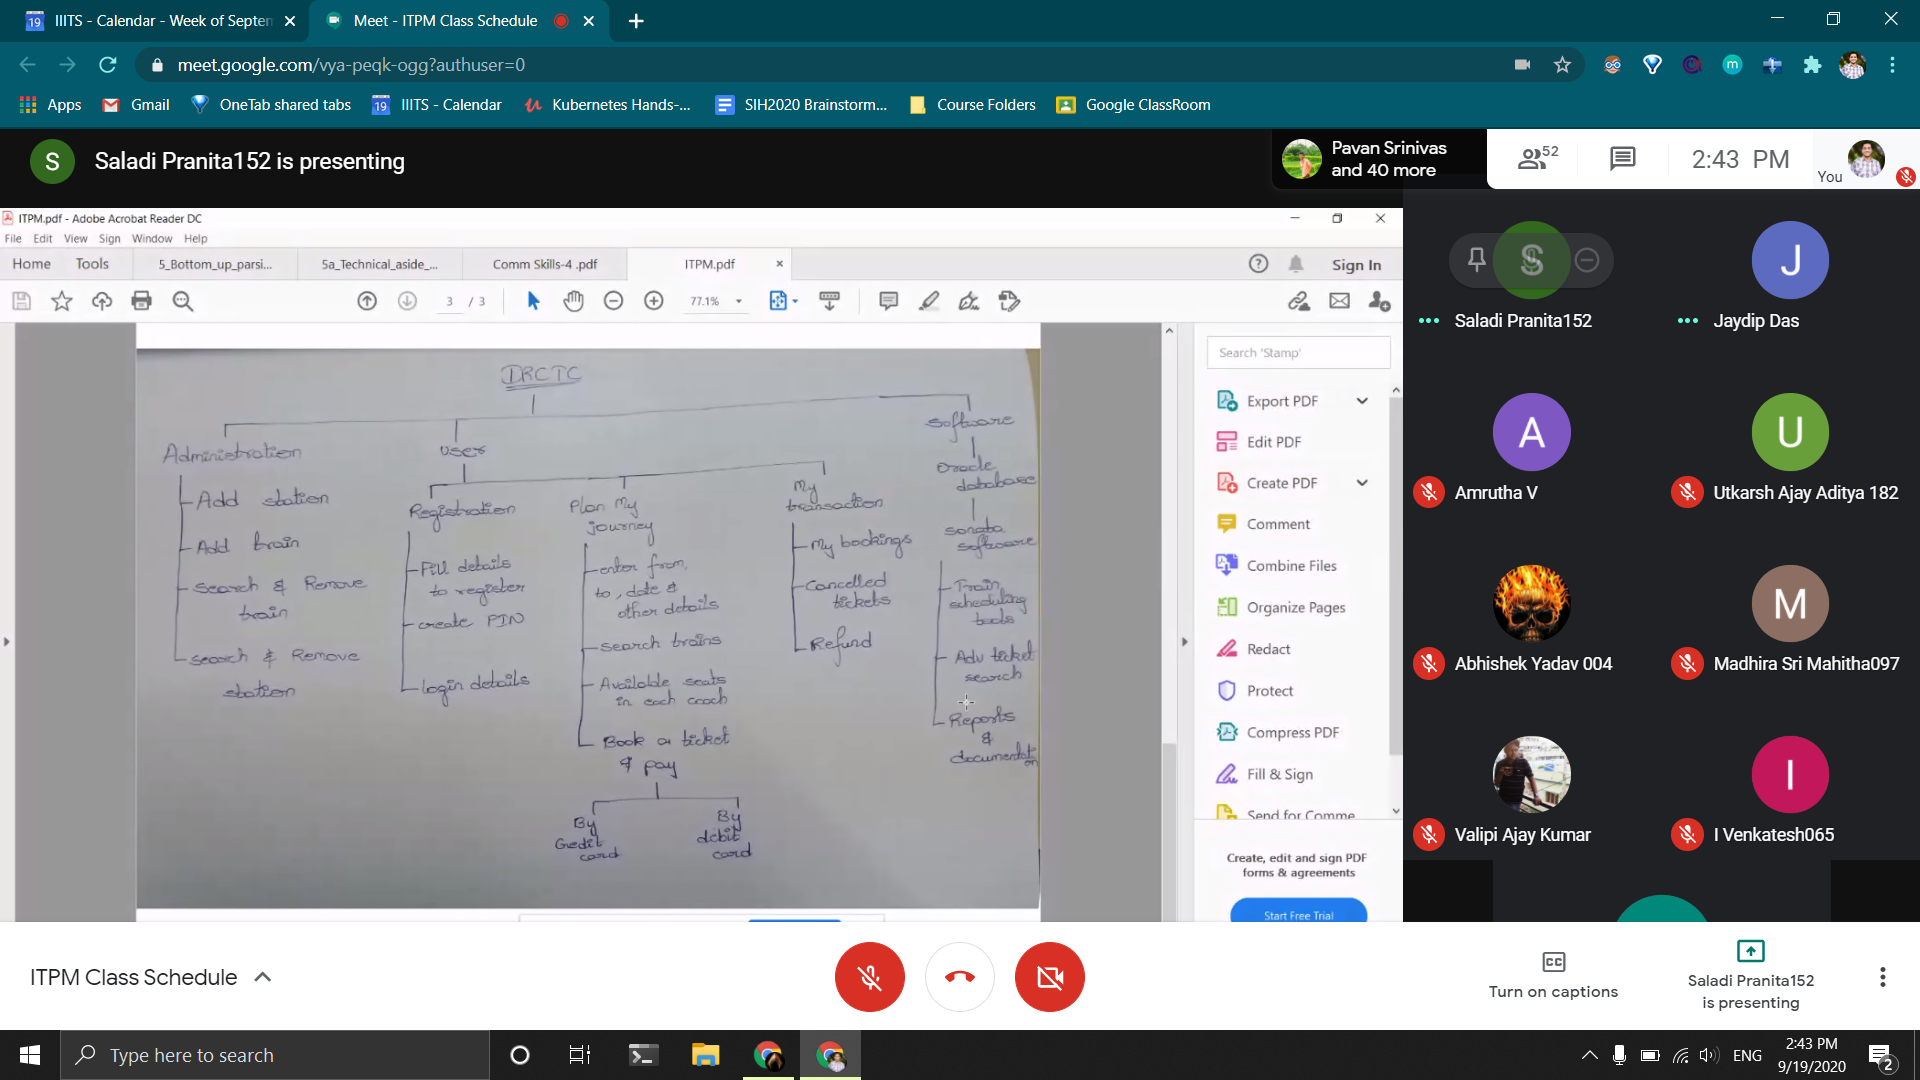 IIITS - Calendar - Week of Septem
Meet - ITPM Class Schedule
meet.google.com/vya-peqk-ogg?authuser=0
Apps
Gmail
OneTab shared tabs
IIITS - Calendar
Kubernetes Hands-...
SIH2020 Brainstorm...
Course Folders
Google ClassRoom
S
Saladi Pranita152 is presenting
Pavan Srinivas
and 40 more
52
2:43 PM
You
ITPM.pdf - Adobe Acrobat Reader DC
File Edit View Sign Window Help
Home
Tools
5_Bottom_up_parsi...
5a_Technical_aside_...
Comm Skills-4 .pdf
ITPM.pdf
Sign In
3 / 3
77.1%
IRCTC
Administration
Add station
Add train
Search & Remove
train
Search & Remove
station
User
Registration
Fill details
to register
create PIN
login details
Plan My
journey
enter from,
to, date &
other details
search trains
Available seats
in each coach
Book a ticket
& pay
By
Credit
card
By
debit
card
My
transaction
My bookings
Cancelled
tickets
Refund
Software
Oracle
database
sonata
software
Train
scheduling
tools
Adv ticket
search
Reports
&
documentation
Search 'Stamp'
Export PDF
Edit PDF
Create PDF
Comment
Combine Files
Organize Pages
Redact
Protect
Compress PDF
Fill & Sign
Send for Comme
Create, edit and sign PDF
forms & agreements
Start Free Trial
S
Saladi Pranita152
J
Jaydip Das
A
Amrutha V
U
Utkarsh Ajay Aditya 182
Abhishek Yadav 004
M
Madhira Sri Mahitha097
Valipi Ajay Kumar
I
I Venkatesh065
ITPM Class Schedule
Turn on captions
Saladi Pranita152
is presenting
Type here to search
ENG
2:43 PM
9/19/2020
2